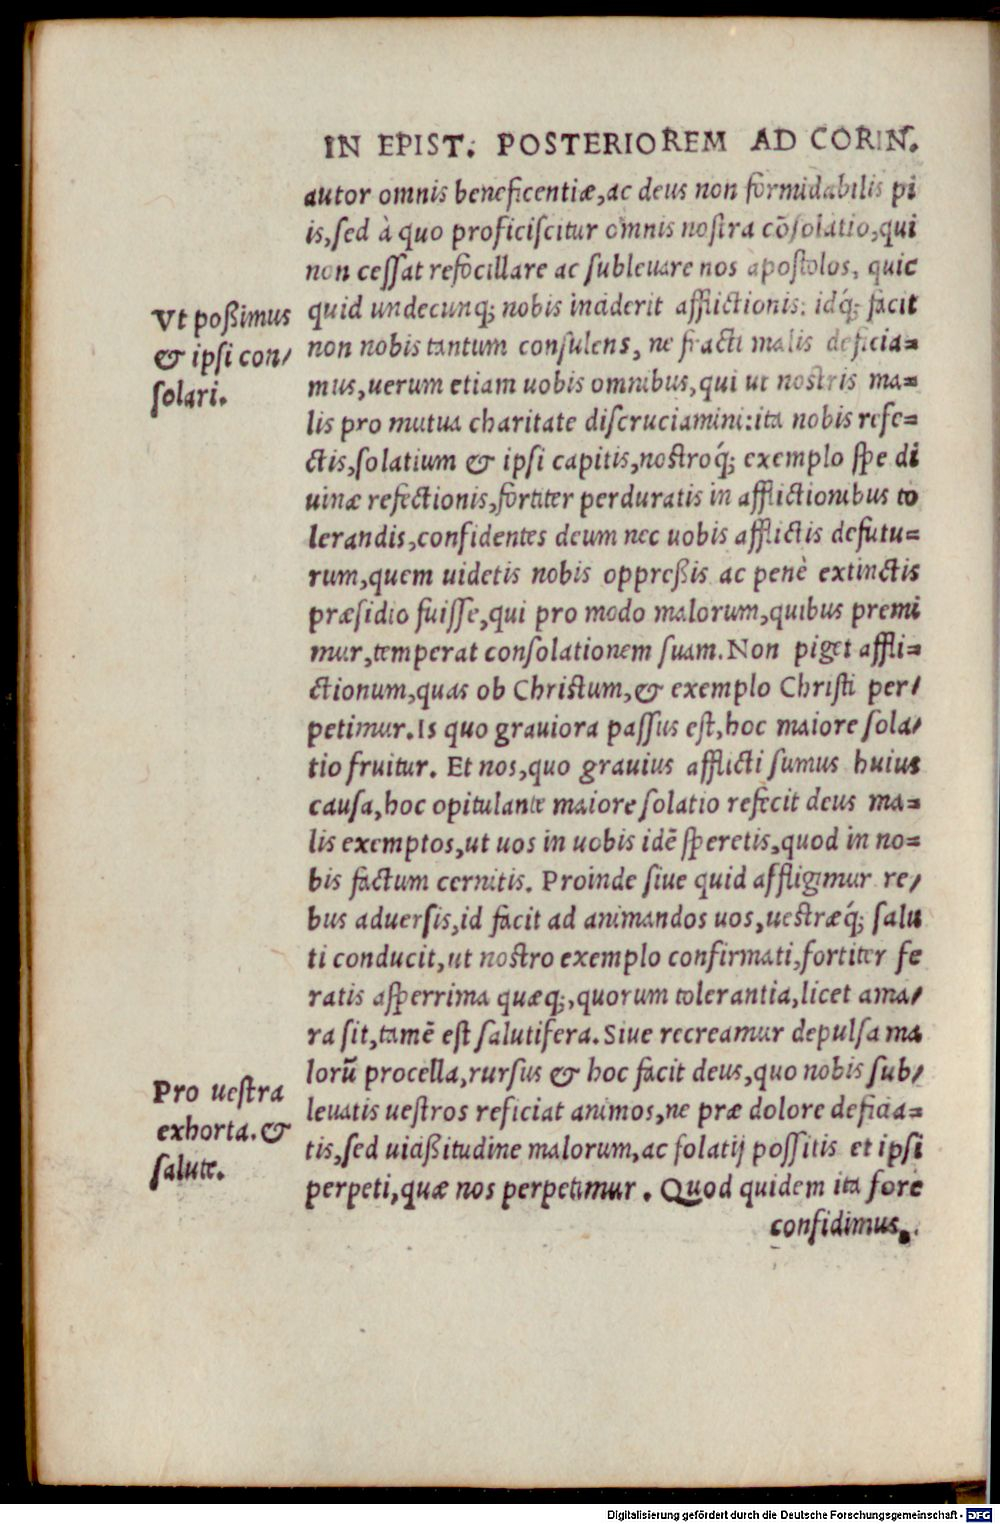 IN EPIST. POSTERIOREM AD CORIN.
autor omnis beneficentiæ,ac deus non formidabilis pi
is,sed à quo proficiscitur omnis nostra cōsolatio,qui
non cessat refocillare ac subleuare nos apostolos, quic
quid undecunq; nobis inciderit afflictionis: idq́; facit
non nobis tantum consulens, ne fracti malis deficia=
mus,uerum etiam uobis omnibus,qui ut nostris ma=
lis pro mutua charitate discruciamini:ita nobis refe=
ctis,solatium & ipsi capitis,nostroq́; exemplo spe di
uinæ refectionis,fortiter perduratis in afflictionibus to
lerandis,confidentes deum nec uobis afflictis defutu=
rum,quem uidetis nobis oppreßis ac penè extinctis
præsidio fuisse,qui pro modo malorum,quibus premi
mur,temperat consolationem suam.Non piget affli=
ctionum,quas ob Christum,& exemplo Christi per/
petimur.Is quo grauiora passus est,hoc maiore sola/
tio fruitur. Et nos,quo grauius afflicti sumus huius
causa,hoc opitulante maiore solatio refecit deus ma=
lis exemptos,ut uos in uobis idē speretis,quod in no=
bis factum cernitis. Proinde siue quid affligimur re/
bus aduersis,id facit ad animandos uos,uestræq́; salu
ti conducit,ut nostro exemplo confirmati,fortiter fe
ratis asperrima quæq;,quorum tolerantia,licet ama/
ra sit,tamē est salutifera.Siue recreamur depulsa ma
lorū procella,rursus & hoc facit deus,quo nobis sub/
leuatis uestros reficiat animos,ne præ dolore deficia=
tis,sed uicißitudine malorum,ac folatij possitis et ipsi
perpeti,quæ nos perpetimur. Quod quidem ita fore
confidimus.
Vt poßimus
& ipsi con/
solari.
Pro uestra
exhorta.&
salute.
Digitalisierung gefördert durch die Deutsche Forschungsgemeinschaft - DFG